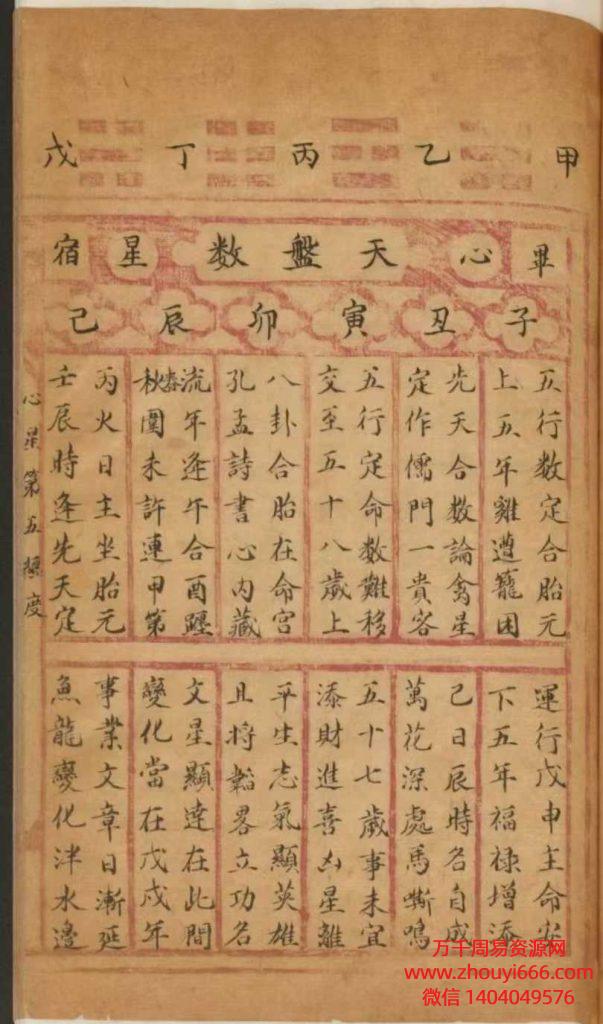 甲 乙 丙 丁 戊
畢 心 天盤數 星 宿
子 丑 寅 卯 辰 巳
五行數定合胎元
上五年雞遭籠困
先天合數論禽星
定作儒門一貴客
五行定命數難移
交至五十八歲上
八卦合胎在命宮
孔孟詩書心內藏
流年逢午合酉躔
秋圍未許連甲第
丙火日主坐胎元
壬辰時逢先天定
運行戊申主命安
下五年福祿增添
己日辰時名自成
萬花深處馬嘶鳴
五十七歲事未宜
添財進喜凶星離
平生志氣顯英雄
且將韜畧立功名
文星顯達在此間
變化當在戊戌年
事業文章日漸延
魚龍變化泮水邊
心星第五 度
万千周易资源网
www.zhouyi666.com
微信 1404049576